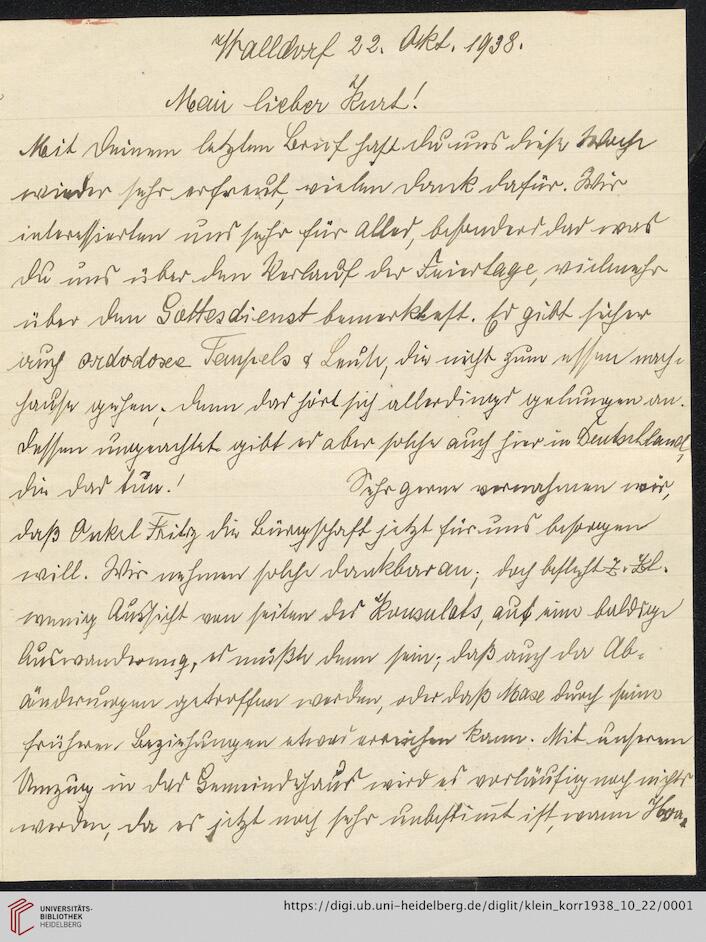 Walldorf 22. Okt. 1938.
Mein lieber Kurt!
Mit Deinem letzten Brief hast du uns diese Woche
wieder sehr erfreut, vielen Dank dafür. Wir
interessierten uns sehr für alles, besonders das was
du uns über den Verlauf der Feiertage, vielmehr
über den Gottesdienst bemerktest. Es gibt sicher
auch ordodoxee Tempels & Leute, die nicht zum essen nach-
hause gehen, denn das hört sich allerdings gelungen an.
Dessen ungeachtet gibt es aber solche auch hier in Deutschland,
die das tun! Sehr gerne vernahmen wir,
daß Onkel Fritz die Bürgschaft jetzt für uns besorgen
will. Wir nehmen solche dankbar an; doch besteht z. Zt.
wenig Aussicht von seiten des Konsulats, auf eine baldige
Auswanderung, es müßte denn sein, daß auch da Ab-
änderungen getroffen werden, oder daß Maxe durch seine
früheren Beziehungen etwas erreichen kann. Mit unserem
Umzug in das Gemeindehaus wird es vorläufig noch nichts
werden, da es jetzt noch sehr unbestimmt ist, wann
UNIVERSITÄTS-
BIBLIOTHEK
HEIDELBERG
https://digi.ub.uni-heidelberg.de/diglit/klein_korr1938_10_22/0001